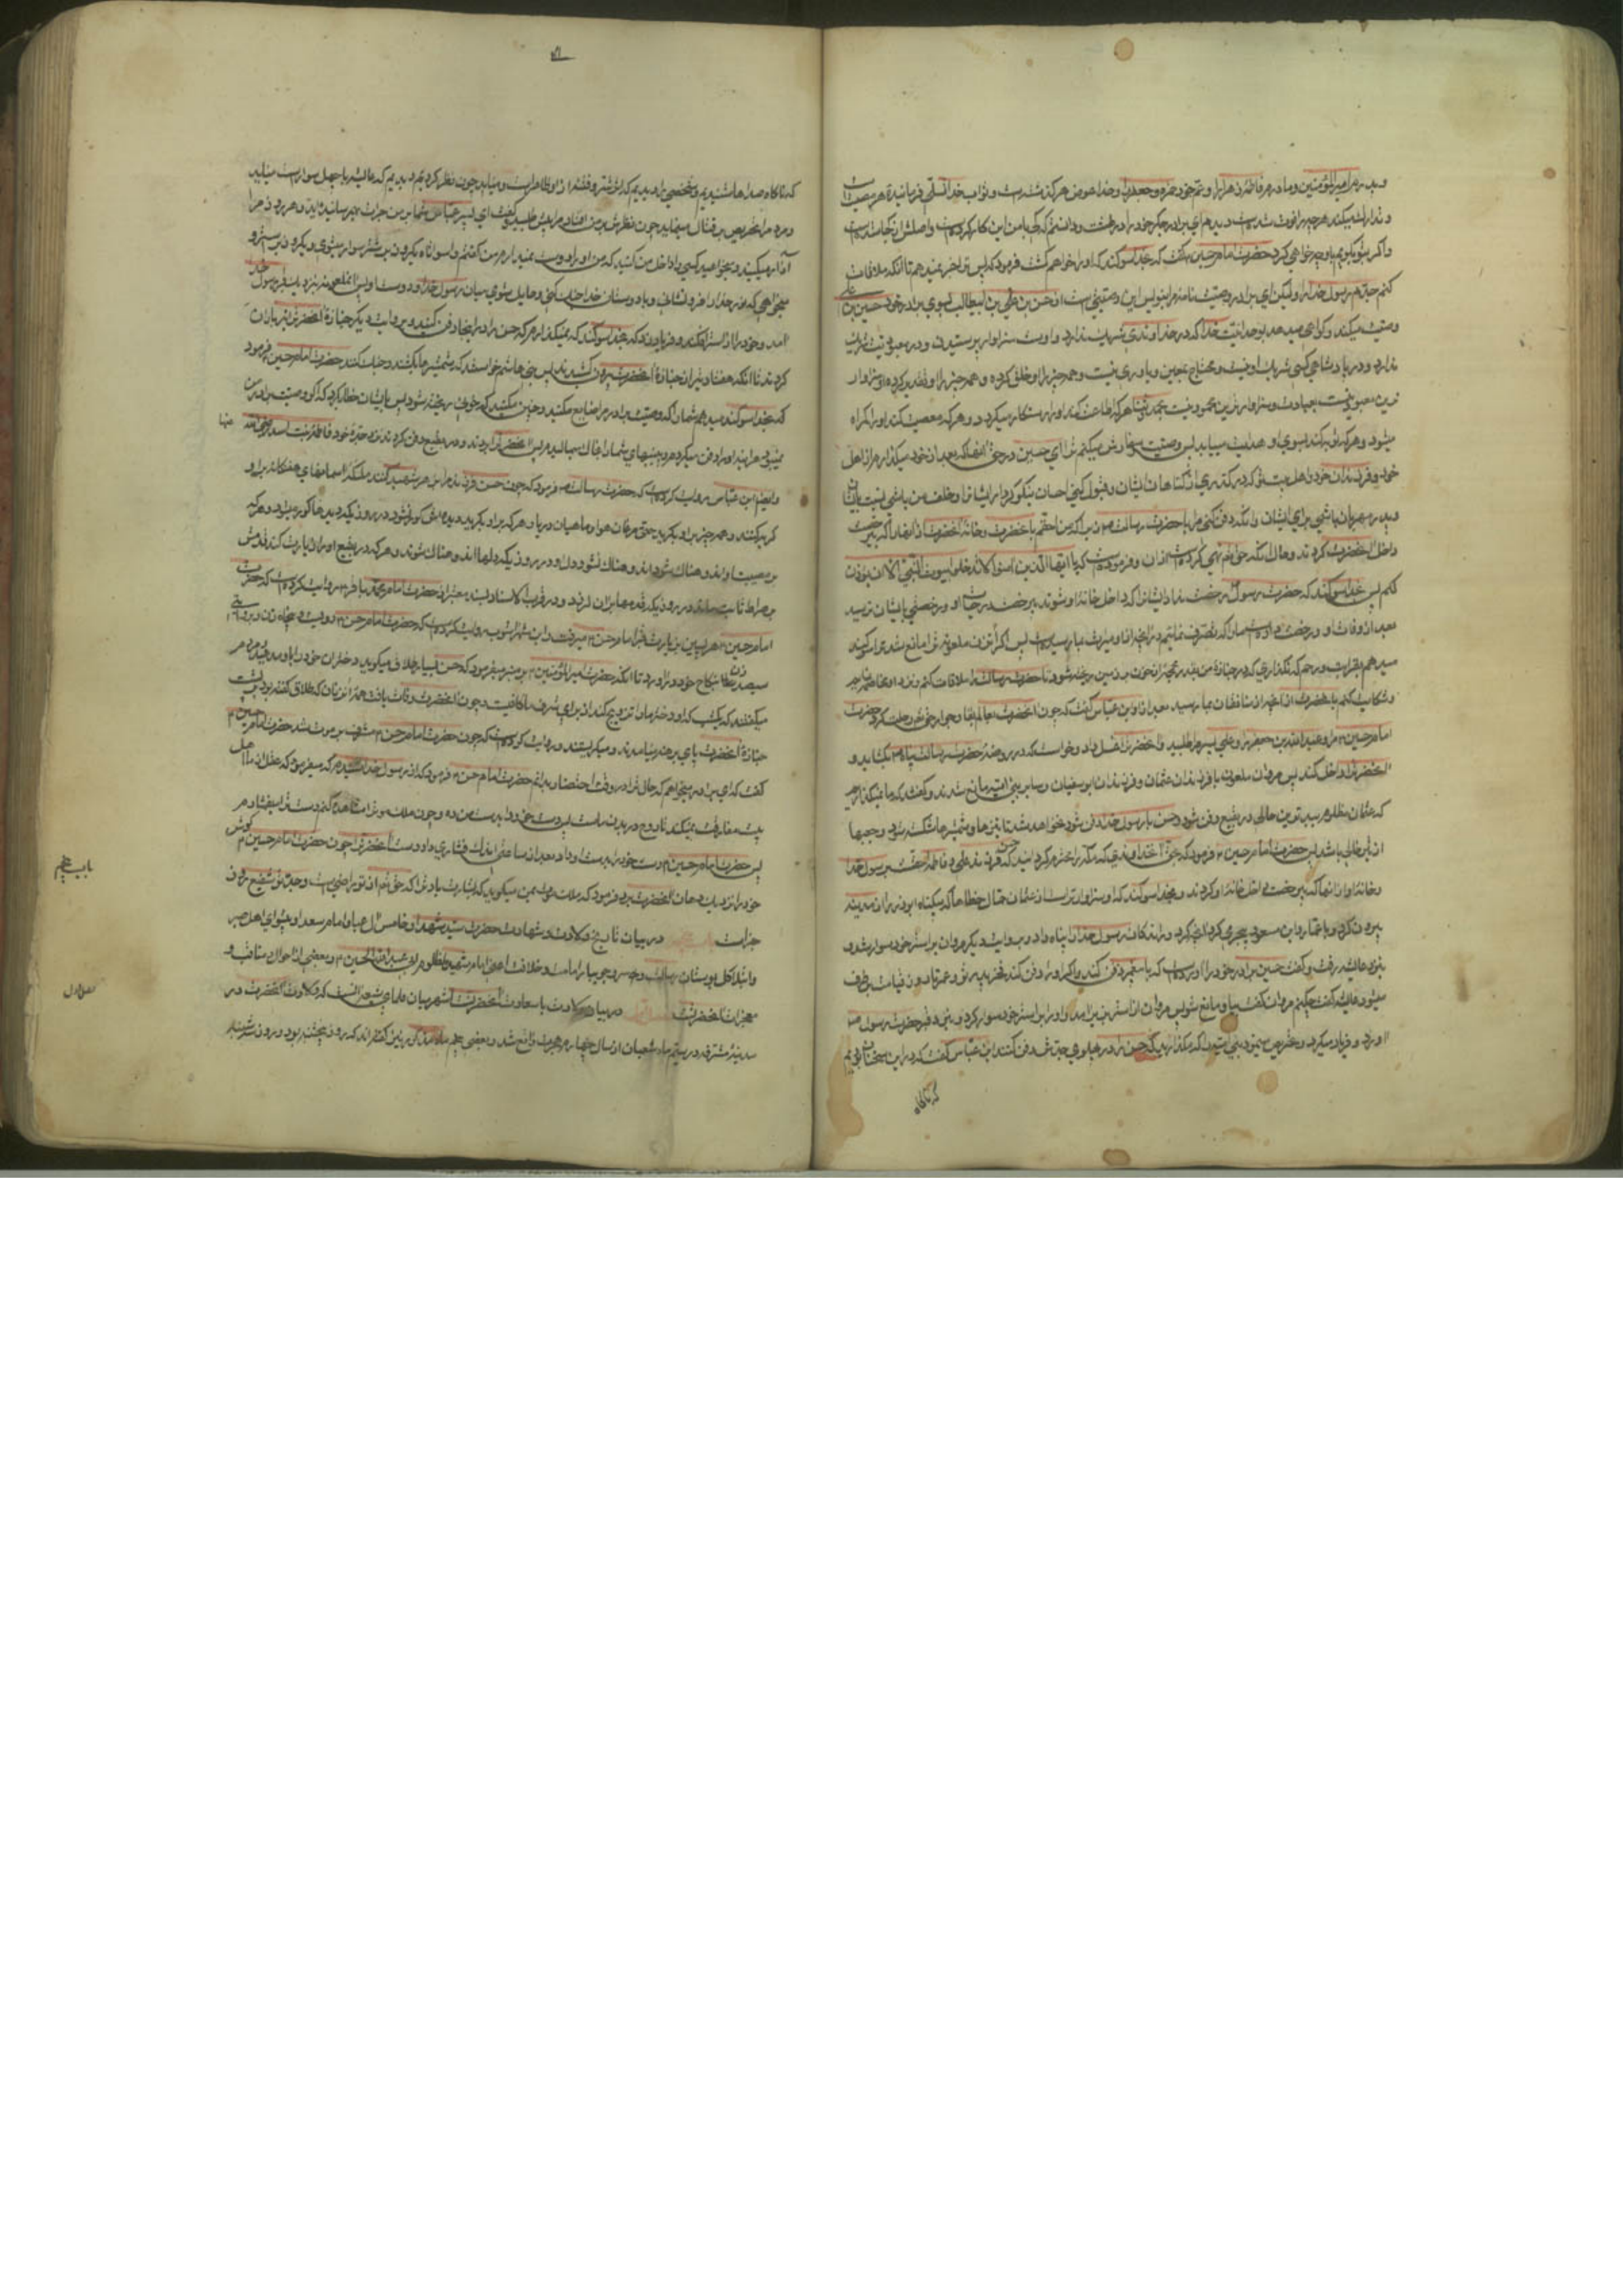 و پدرم امیرالمؤمنین و مادرم فاطمه زهرا و عم خود حمزه و جعفر را و خدا عوض هر گذشته است و ثواب خدا تسلی فرماینده هر مصیبت است
و تدارک میکند هر چه را فوت شده است دیدم ای برادر جگر خود را در طشت و دانستم که کی با من این کار کرده است و اصلش از کجا شده است
و اگر بتو بگویم با او چه خواهی کرد حضرت امام حسین گفت که بخدا سوگند که او را خواهم کشت فرمود که پس ترا خبر نمیدهم تا آنکه ملاقات
کنم جدم رسول خدا را و لیکن ای برادر وصیت نامه مرا بنویس این وصیتی است از حسن بن علی بن ابیطالب بسوی برادر خود حسین بن علی
وصیت میکند و گواهی میدهد بوحدانیت خدا که در خداوندی شریک ندارد و اوست سزاوار پرستیدن و در معبودیت شریک
ندارد و در پادشاهی کسی شریک او نیست و محتاج بمعین و یاوری نیست و همه چیز را او خلق کرده و همه چیز را او تقدیر کرده و او سزاوار
ترین معبودیست بعبادت و سزاوارترین محمودیست بحمد و ثنا هر که اطاعت کند او را رستگار میگردد و هر که معصیت کند او را گمراه
میشود و هر که توبه کند بسوی او هدایت مییابد پس وصیت و سفارش میکنم ترا ای حسین در حق آنها که بعد از خود میگذارم از اهل
خود و فرزندان خود و اهل بیت تو که درگذری از گناهان ایشان و قبول کنی احسان نیکوکردار ایشان را و خلف من باشی نسبت بایشان
و پدر مهربان باشی برای ایشان و آنکه دفن کنی مرا با حضرت رسالت زیرا که من احقم بآنحضرت و خانه آنحضرت از آنها که بی رخصت
داخل آنحضرت کردند و حال آنکه حق تعالی نهی کرده است از آن و فرموده است که یا ایها الذین آمنوا لا تدخلوا بیوت النبی الا ان یؤذن
لکم پس بخدا سوگند که حضرت رسول رخصت نداد ایشان را که داخل خانه او شوند بی رخصت در حیات او و رخصتی بایشان نرسید
بعد از وفات او و رخصت داده است ما را که تصرف نمائیم در آنچه از او میراث بما رسیده است پس اگر آن زن ملعونه ترا مانع شد ترا سوگند
میدهم بقرابت و رحم که نگذاری که در جنازه من بقدر محجمه از خون بر زمین ریخته شود تا حضرت رسالت را ملاقات کنم و نزد او مخاصمه نمایم
و شکایت کنم بآنحضرت از آنچه از منافقان بما رسید بعد از او ابن عباس گفت که چون آنحضرت بعالم بقا و جوار حق تعالی رحلت کرد حضرت
امام حسین مرا و عبدالله بن جعفر و علی پسر مرا طلبید و آنحضرت را غسل داد و خواست که در روضه حضرت رسالت پناه بگشاید و
آنحضرت را داخل کند پس مروان ملعون با فرزندان عثمان و فرزندان ابوسفیان و سایر بنی امیه مانع شدند و گفتند که ما نمیگذاریم
که عثمان مظلوم ببدترین حالی در بقیع دفن شود و حسن با رسول خدا دفن شود نخواهد شد تا نیزها و شمشیرها شکسته شود و جعبها
از تیر خالی باشد پس حضرت امام حسین فرمود که بحق آن خداوندی که مکه را محترم گردانید که حسن فرزند علی و فاطمه احق است برسول خدا
و خانه او از آنها که بی رخصت داخل خانه او کردند و بخدا سوگند که او سزاوارتر است از عثمان حمال خطاها که بیگناه ابوذر را از مدینه
بیرون کرد و با عمار و ابن مسعود کرد آنچه کرد و راندگان رسول خدا را پناه داد و بروایت دیگر مروان بر استر خود سوار شد و
بنزد عایشه رفت و گفت حسین برادر خود را آورده است که با پیغمبر دفن کند و اگر او را دفن کند فخر پدر تو و عمر تا روز قیامت برطرف
میشود عایشه گفت چکنم مروان گفت بیا و مانع شو پس مروان از استر بزیر آمد و او را بر استر خود سوار کرد و بنزد قبر حضرت رسول
آورد و فریاد میکرد و تحریص مینمود بنی امیه را که مگذارید که حسن را در پهلوی جدش دفن کنند ابن عباس گفت که در این سخنان بودیم
که ناگاه
که ناگاه صداها شنیدیم و شخصی را دیدیم که اثر شر و فتنه از او ظاهر است و میاید چون نظر کردیم دیدیم که عایشه با چهل سوار است میاید
و مردم را تحریص بر قتال مینماید چون نظرش بر من افتاد مرا پیش طلبید و گفت ای پسر عباس شما بر من جرأت بهم رسانیده اید و هر روز مرا
آزار میکنید و میخواهید کسی را داخل خانه من کنید که من او را دوست نمیدارم من گفتم واسوأتاه یکروز بر شتر سوار میشوی و یکروز بر استر و
میخواهی که نور خدا را فرو نشانی و با دوستان خدا جنگ کنی و حایل شوی میان رسول خدا و دوست او پس آن ملعونه بنزدیک قبر رسول خدا
آمد و خود را از استر افکند و فریاد زد که بخدا سوگند که نمیگذارم که حسن را در اینجا دفن کنند و بروایت دیگر جنازه آنحضرت را تیرباران
کردند تا آنکه هفتاد تیر از جنازه آنحضرت بیرون کشیدند پس بنی هاشم خواستند که شمشیرها بکشند و جنگ کنند حضرت امام حسین فرمود
که بخدا سوگند میدهم شما را که وصیت برادرم را ضایع مکنید و چنین مکنید که خون ریخته شود پس بایشان خطاب کرد که اگر وصیت برادرم
نمیبود هر آینه او را دفن میکردم و بینیهای شما را بخاک میمالیدم پس آنحضرت را بردند و در بقیع دفن کردند نزد جده خود فاطمه بنت اسد رضی الله عنها
و ایضا ابن عباس روایت کرده است که حضرت رسالت فرمود که چون حسن فرزندم را بزهر شهید کنند ملائکه آسمانهای هفتگانه بر او
گریه کنند و همه چیز بر او بگرید حتی مرغان هوا و ماهیان دریا و هر که بر او بگرید دیده اش کور نشود در روزیکه دیدها کور میشود و هر که
بر مصیبت او اندوهناک شود اندوهناک نشود دل او در روزیکه دلها اندوهناک شوند و هر که در بقیع او را زیارت کند قدمش
بر صراط ثابت ماند در روزیکه قدمها بر آن لرزد و در قرب الاسناد بسند معتبر از حضرت امام محمد باقر روایت کرده است که حضرت
امام حسین هر پسین بزیارت قبر امام حسن میرفت و ابن شهرآشوب روایت کرده است که حضرت امام حسن دویست و پنجاه زن و بروایتی
سیصد زن بنکاح خود در آورد تا آنکه حضرت امیرالمؤمنین بر منبر میفرمود که حسن بسیار طلاق میگوید دختران خود را باو مدهید و مردم
میگفتند که یکشب که او دختر ما را تزویج کند از برای شرف ما کافیست و چون آنحضرت وفات یافت همه آن زنان که طلاق گفته بود پشت
جنازه آنحضرت پای برهنه میامدند و میگریستند و روایت کرده است که چون حضرت امام حسن مشرف بر موت شد حضرت امام حسین
گفت که ای برادر میخواهم که حال ترا در وقت احتضار بدانم حضرت امام حسن فرمود که از رسول خدا شنیدم که میفرمود که عقل از ما اهل
بیت مفارقت نمیکند تا روح در بدن ماست پس دست خود را بدست من ده و چون ملک موت را مشاهده کنم دست ترا میفشارم
پس حضرت امام حسین دست خود را بدست او داد و بعد از ساعتی اندک فشاری داد دست آنحضرت را چون حضرت امام حسین گوش
خود را نزدیک دهان آنحضرت برد فرمود که ملک موت بمن میگوید که بشارت باد ترا که حق تعالی از تو راضی است و جد تو شفیع روز
جزاست
در بیان تاریخ ولادت و شهادت حضرت سید شهدا و خامس آل عبا و امام سعدا و پیشوای اهل صبر
و ابتلا گل بوستان رسالت و خسرو امامت و خلافت اعنی امام شهید مظلوم ابی عبدالله الحسین و بعضی از احوال مناقب و
معجزات آنحضرتست
در بیان ولادت با سعادت آنحضرت اشهر میان علمای شیعه آنست که ولادت آنحضرت در
مدینه مشرفه در سیم ماه شعبان از سال چهارم هجرت واقع شد و بعضی پنجم ماه مذکور نیز گفته اند که روز پنجشنبه بود و روز سه شنبه
باب پنجم
فصل اول